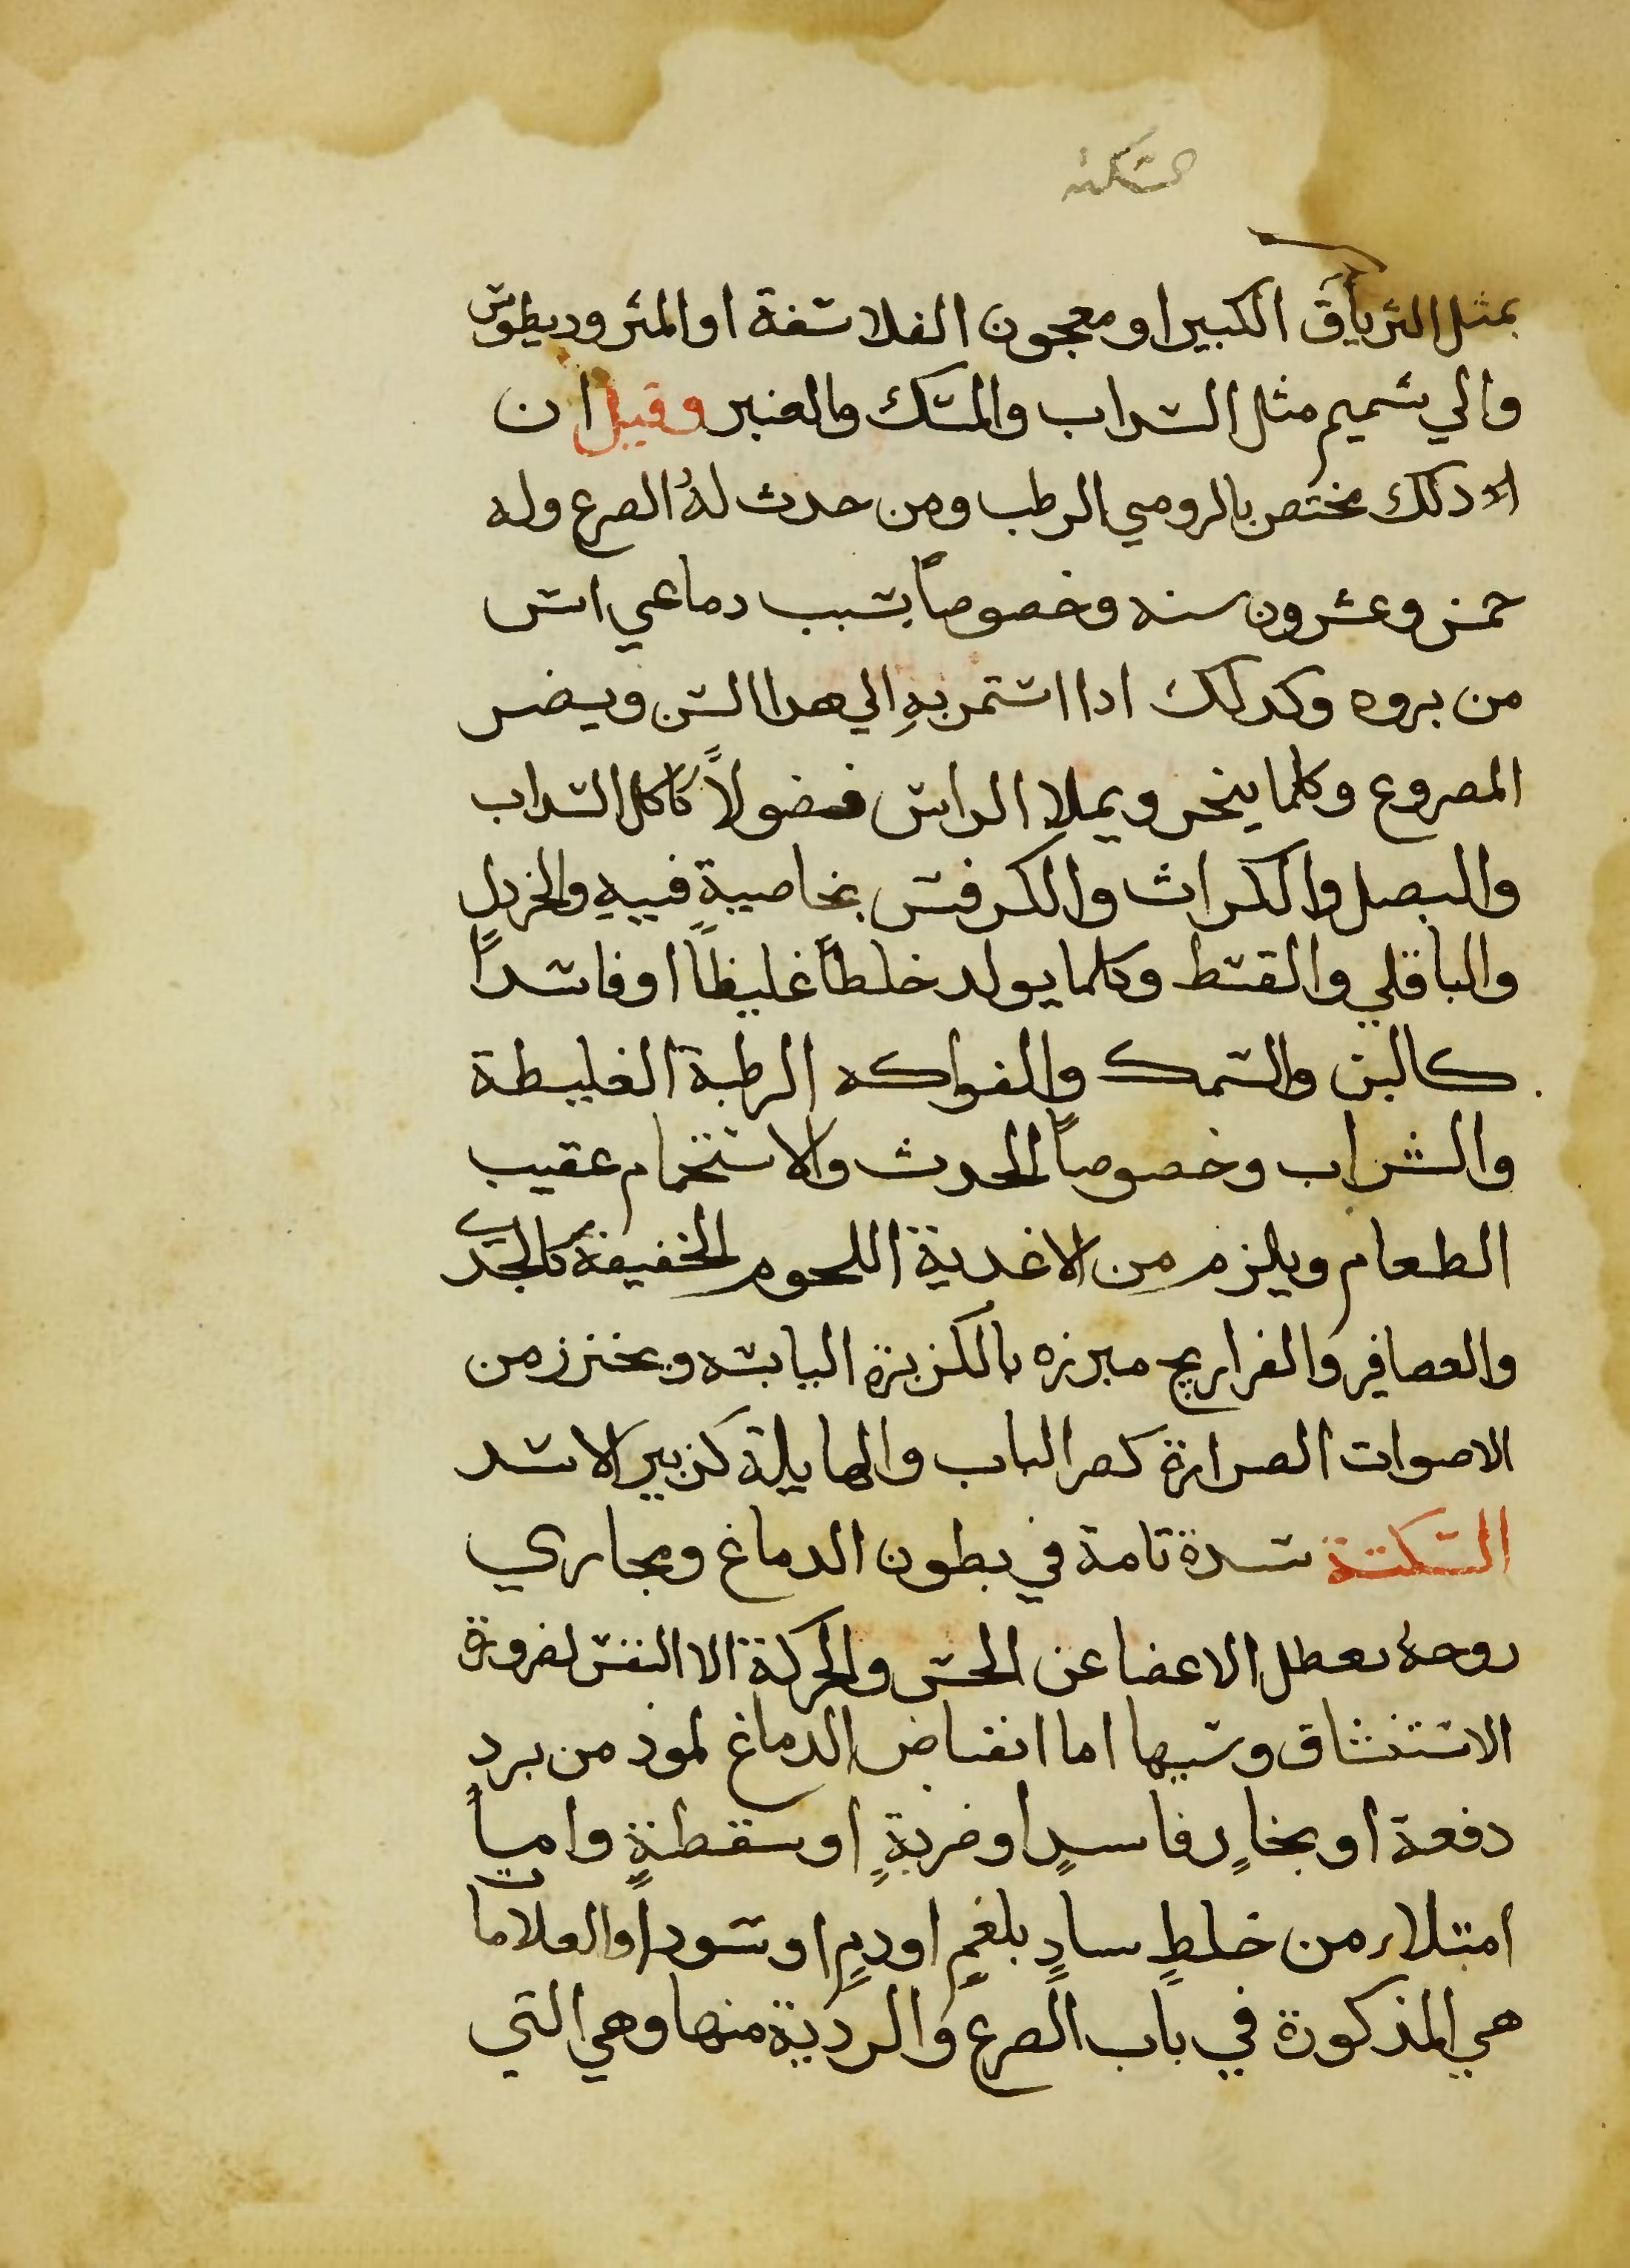 سكته
بمثل الترياق الكبير او معجون الفلاسفة او المثروديطوس
والي شميم مثل السداب والمسك والعنبر وقيل ان
ذلك مختص بالرومي الرطب ومن حدث لهُ الصرع وله
خمس وعشرون سنه وخصوصاً بسبب دماعي اىس
من بروه وكدلك ادا استمر بهِ الي هدا السن ويضر
المصروع وكلما يبخر ويملا الراس فضولاً كاكل السداب
والبصل والكراث والكرفس بخاصيةٍ فييهِ والخردل
والباقلي والقسط وكلما يولد خلطاً غليظاً او فاسداً
كالبن والسمك والفواكه الرطبة الغليطة
والشراب وخصوصاً الحدث والاستحمام عقيب
الطعام ويلزم من الاغدية اللحوم الخفيفة كالجدي
والعصافير والفراريج مبرزه بالكزبرة اليابسه ويحترز من
الاصوات الصرارة كصر الباب والهايلة كزبير الاسد
السكتة سدة تامة في بطون الدماغ ومجاري
روحهٔ ىعطل الاعضا عن الحس والحركة الا النفس لضرورة
الاستنشاق وسببها اما انقباض الدماغ لموذ من بردٍ
دفعة او بخارٍ فاسدٍ او ضربةٍ او سقطةٍ واما
امتلاء من خلطٍ سادٍ بلغمٍ او دمٍ او سودا والعلامات
هي المذكورة في باب الصرع والرديّة منها وهي التي